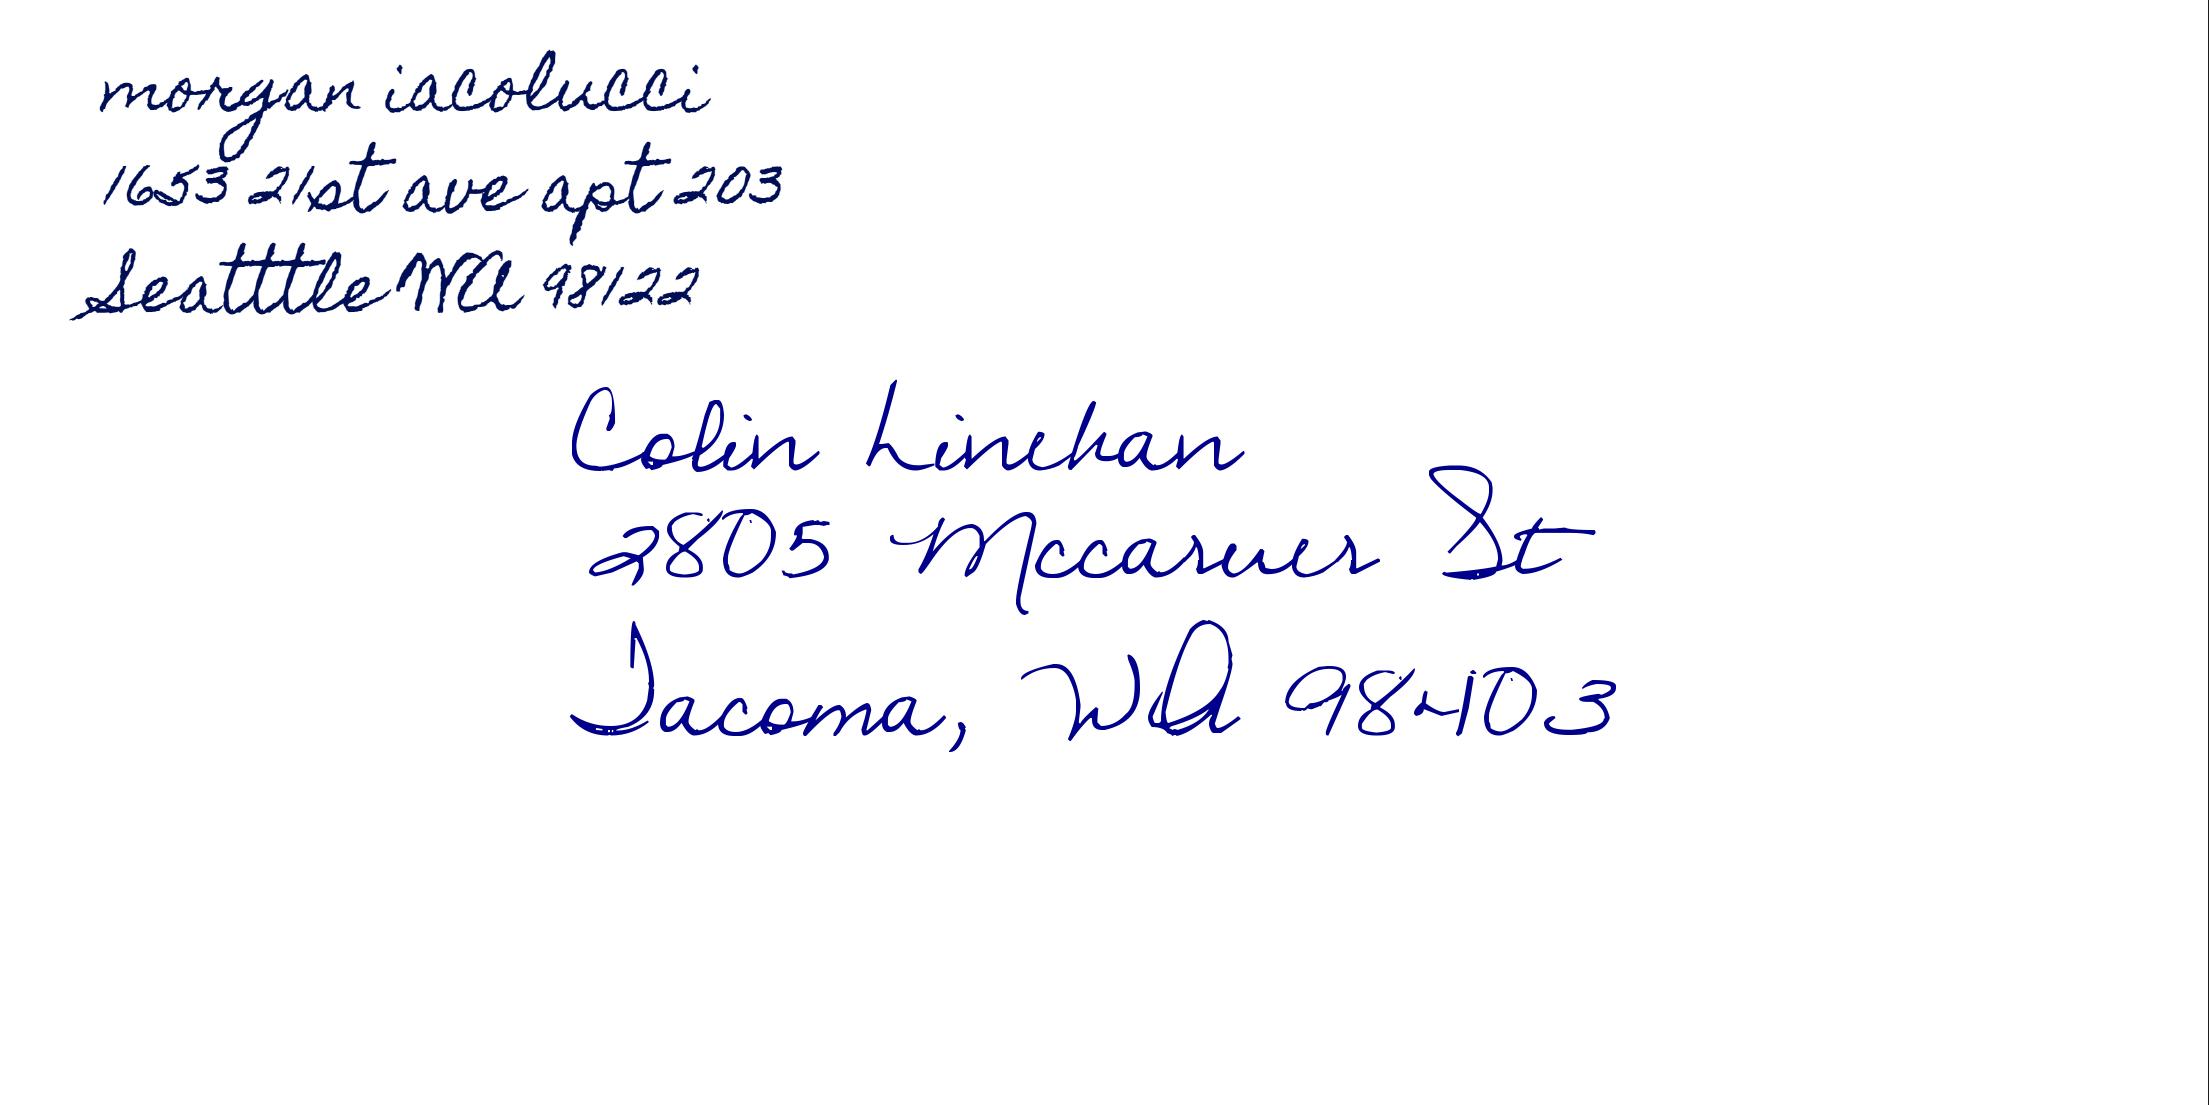 morgan iacolucci
1653 21st ave apt 203
Seatttle WA 98122
Colin Linehan
2805 Mccarver St
Tacoma, WA 98403